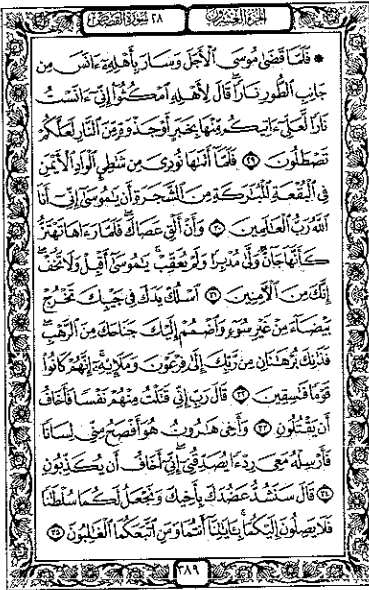 الجزء العشرون ٢٨ سورة القصص
۞ فَلَمَّا قَضَىٰ مُوسَى ٱلْأَجَلَ وَسَارَ بِأَهْلِهِۦٓ ءَانَسَ مِن
جَانِبِ ٱلطُّورِ نَارًا قَالَ لِأَهْلِهِ ٱمْكُثُوٓا۟ إِنِّىٓ ءَانَسْتُ
نَارًا لَّعَلِّىٓ ءَاتِيكُم مِّنْهَا بِخَبَرٍ أَوْ جَذْوَةٍ مِّنَ ٱلنَّارِ لَعَلَّكُمْ
تَصْطَلُونَ ٢٩ فَلَمَّآ أَتَىٰهَا نُودِىَ مِن شَٰطِئِ ٱلْوَادِ ٱلْأَيْمَنِ
فِى ٱلْبُقْعَةِ ٱلْمُبَٰرَكَةِ مِنَ ٱلشَّجَرَةِ أَن يَٰمُوسَىٰٓ إِنِّىٓ أَنَا
ٱللَّهُ رَبُّ ٱلْعَٰلَمِينَ ٣٠ وَأَنْ أَلْقِ عَصَاكَ فَلَمَّا رَءَاهَا تَهْتَزُّ
كَأَنَّهَا جَآنٌّ وَلَّىٰ مُدْبِرًا وَلَمْ يُعَقِّبْ يَٰمُوسَىٰٓ أَقْبِلْ وَلَا تَخَفْ
إِنَّكَ مِنَ ٱلْءَامِنِينَ ٣١ ٱسْلُكْ يَدَكَ فِى جَيْبِكَ تَخْرُجْ
بَيْضَآءَ مِنْ غَيْرِ سُوٓءٍ وَٱضْمُمْ إِلَيْكَ جَنَاحَكَ مِنَ ٱلرَّهْبِ
فَذَٰنِكَ بُرْهَٰنَانِ مِن رَّبِّكَ إِلَىٰ فِرْعَوْنَ وَمَلَإِي۟هِۦٓ إِنَّهُمْ كَانُوا۟
قَوْمًا فَٰسِقِينَ ٣٢ قَالَ رَبِّ إِنِّى قَتَلْتُ مِنْهُمْ نَفْسًا فَأَخَافُ
أَن يَقْتُلُونِ ٣٣ وَأَخِى هَٰرُونُ هُوَ أَفْصَحُ مِنِّى لِسَانًا
فَأَرْسِلْهُ مَعِىَ رِدْءًا يُصَدِّقُنِىٓ إِنِّىٓ أَخَافُ أَن يُكَذِّبُونِ
٣٤ قَالَ سَنَشُدُّ عَضُدَكَ بِأَخِيكَ وَنَجْعَلُ لَكُمَا سُلْطَٰنًا
فَلَا يَصِلُونَ إِلَيْكُمَا بِـَٔايَٰتِنَآ أَنتُمَا وَمَنِ ٱتَّبَعَكُمَا ٱلْغَٰلِبُونَ ٣٥
٣٨٩